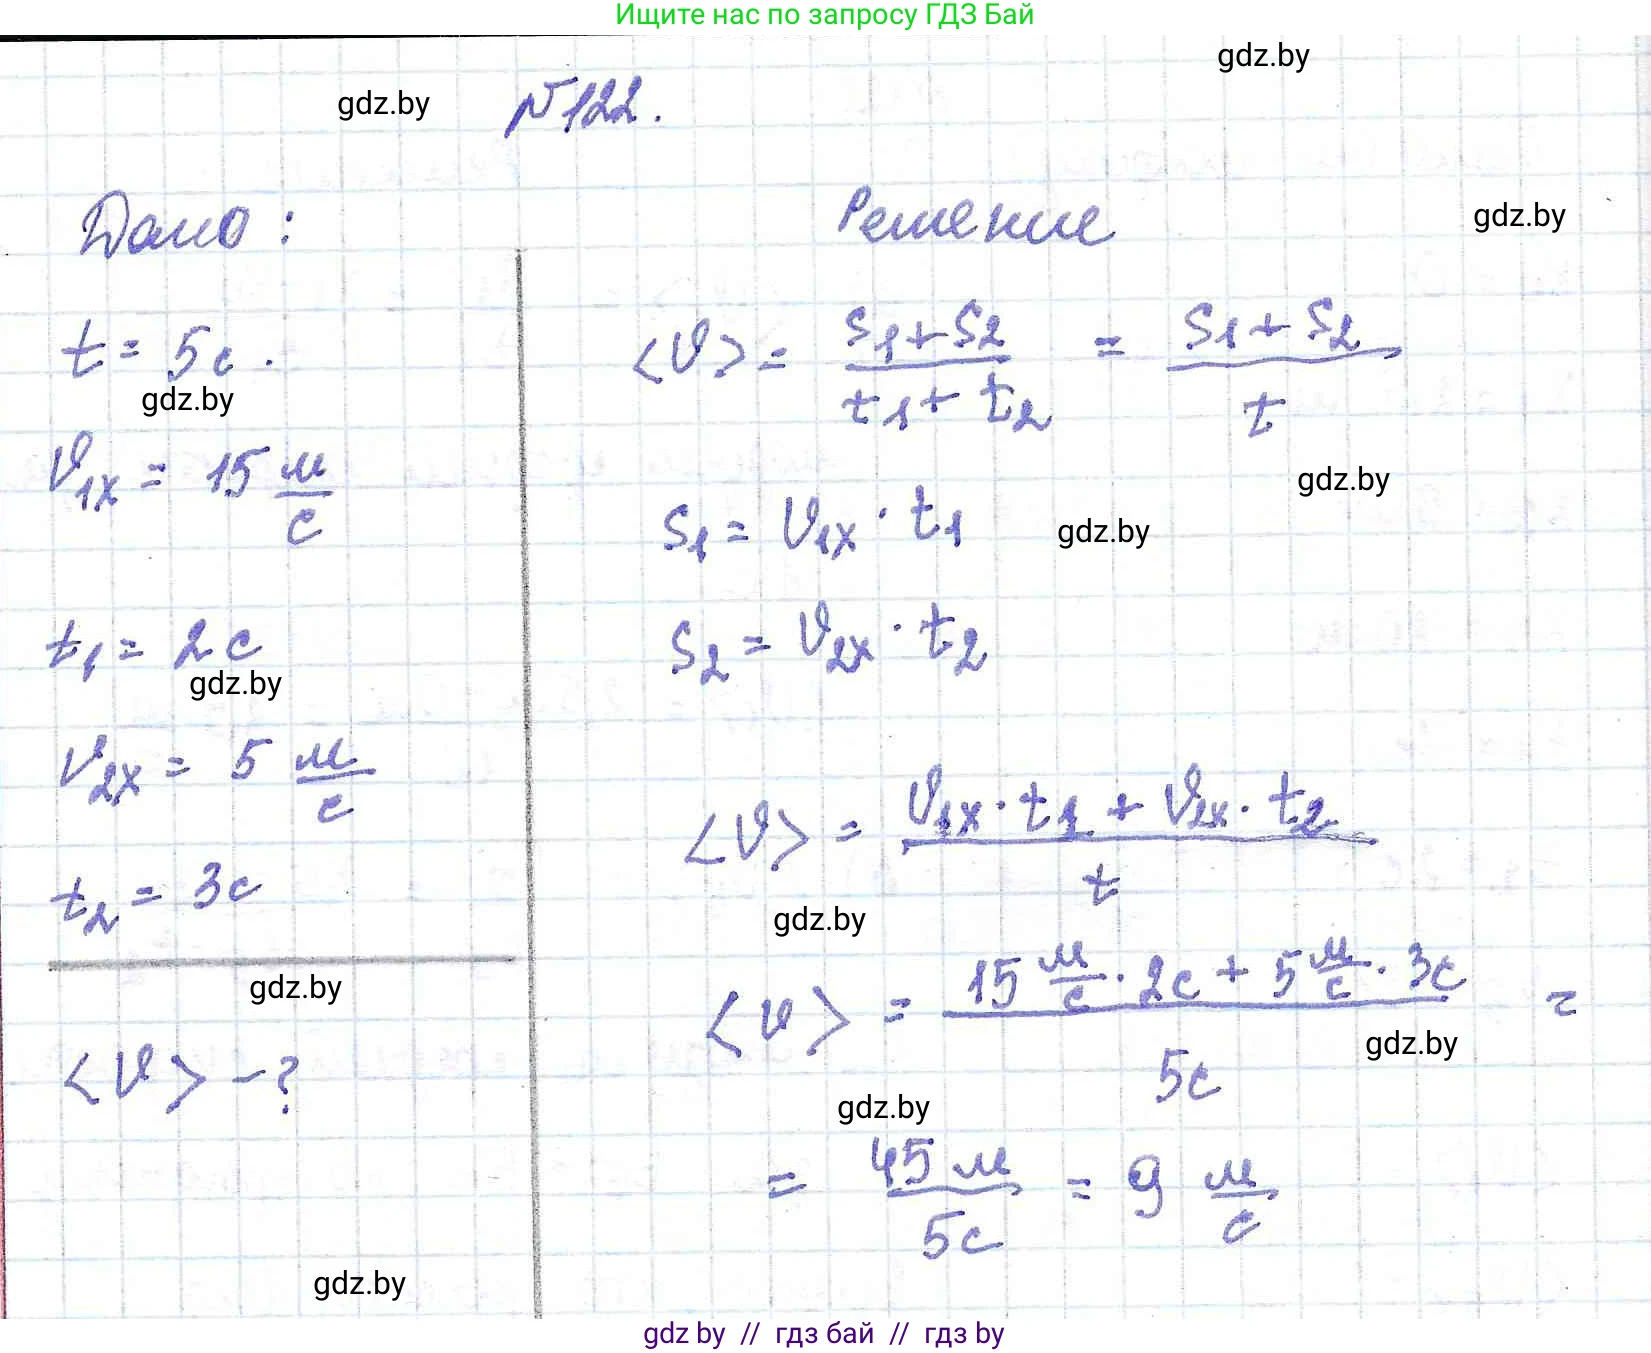 Ищите нас по запросу ГДЗ Бай
gdz.by
gdz.by
№122.
Дано:
Решение
gdz.by
t = 5с.
<υ> = (s₁+s₂)/(t₁+t₂) = (s₁+s₂)/t
gdz.by
υ₁ₓ = 15 м/с
gdz.by
s₁ = υ₁ₓ · t₁
gdz.by
t₁ = 2с
s₂ = υ₂ₓ · t₂
gdz.by
υ₂ₓ = 5 м/с
<υ> = (υ₁ₓ · t₁ + υ₂ₓ · t₂)/t
t₂ = 3с
gdz.by
gdz.by
<υ> = (15 м/с · 2с + 5 м/с · 3с)/5с =
gdz.by
<υ> - ?
gdz.by
= 45 м/5с = 9 м/с
gdz.by
gdz by // гдз бай // гдз by